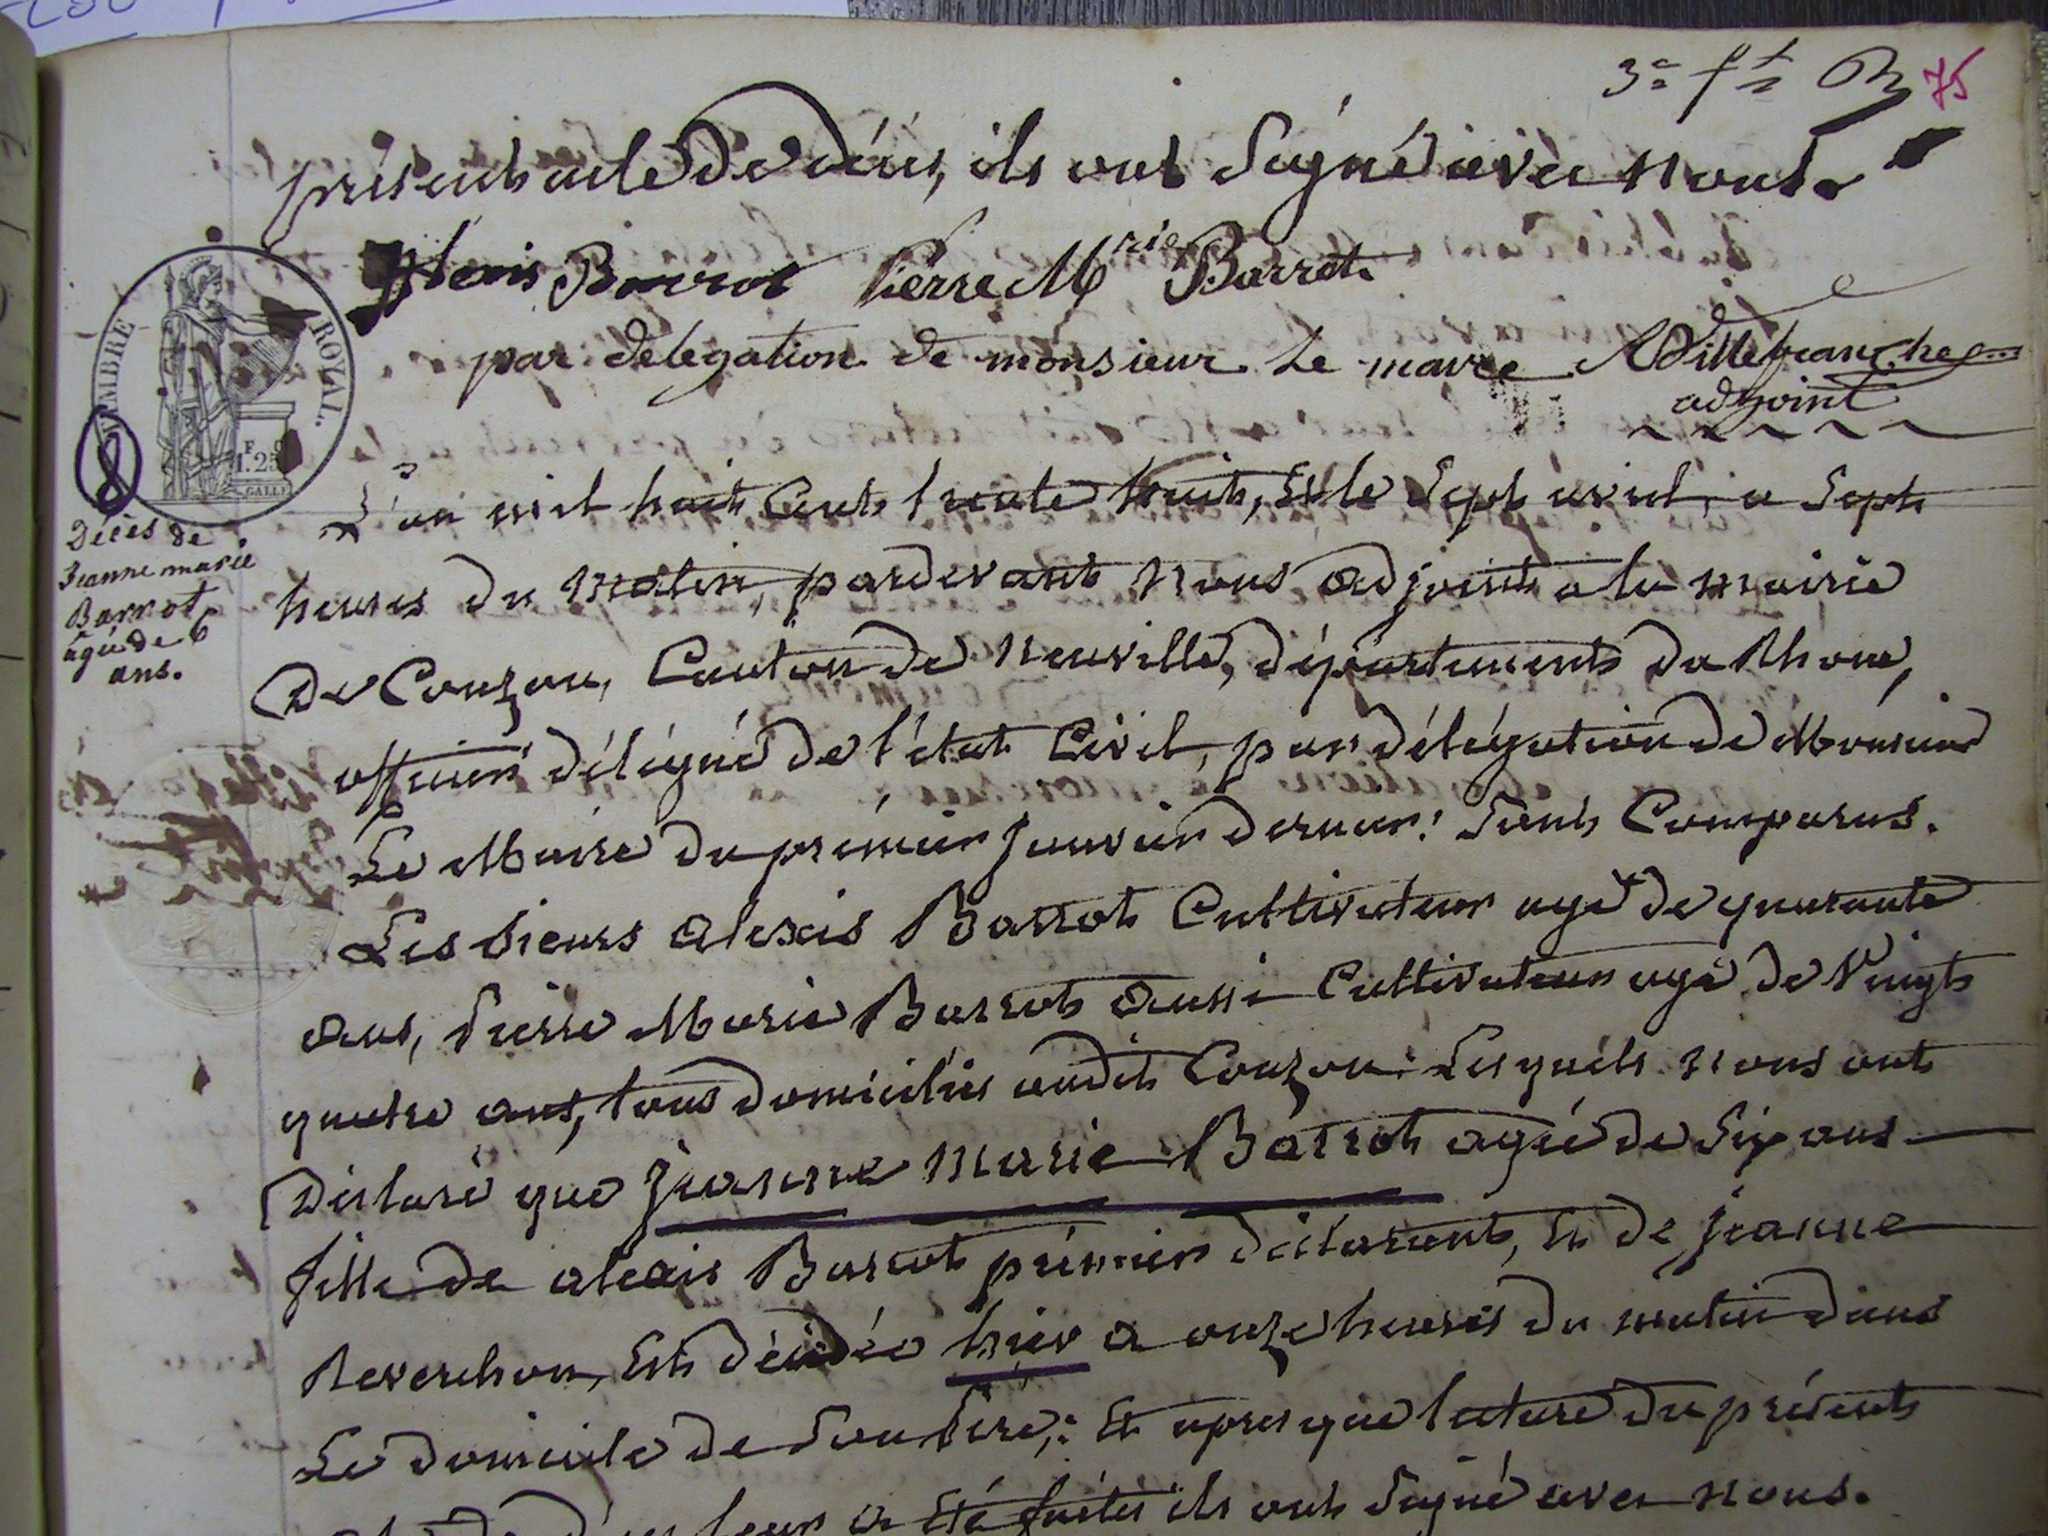 3e ft 75
présent acte de décès, ils ont signé avec nous.
Alexis Barrot Pierre Mrie Barrot
par delegation de monsieur le maire Villefranche
adjoint
TIMBRE ROYAL.
F
1.25
GALLE
8
Décès de
Jeanne marie
Barrot
agée de 6
ans.
L'an mil huit Cent trente huit, Et le Sept avril, a Sept
heures du Matin, pardevant Nous adjoint a la mairie
De Couzon, Canton de Neuville, département du Rhone,
officier délégué de l'état Civil, par délégation de Monsieur
Le Maire du prémier Janvier dernier: Sont Comparus.
Les Sieurs alexis Barrot Cultivateur agé de quarante
ans, Pierre Marie Barrot aussi Cultivateur agé de Vingt
quatre ans, tous domiciliés audit Couzon: Lesquels Nous ont
Déclaré que Jeanne Marie Barrot agée de Six ans
fille de alexis Barrot prémier déclarant, Et de Jeanne
Reverchon, Est décédée hier a onze heures du matin dans
Le domicile de Son Pere,: Et apres que lecture du présent
leur a Eté faites ils ont Signé avec nous.